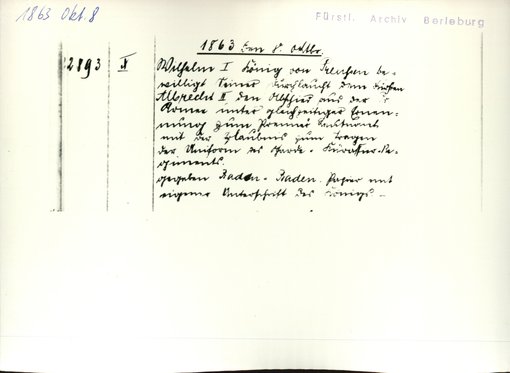 1863 Okt. 8
Fürstl. Archiv Berleburg
1863 den 8. Oktbr.
2893 II
Wilhelm I König von Preußen be-
willigt Seiner Durchlaucht dem Fürsten
Albrecht II den Abschied aus der
Armee unter gleichzeitiger Ernen-
nung zum Premier Leutnant
mit der Erlaubnis zum Tragen
der Uniform des Garde-Kürassier-Re-
giments.
gegeben Baden-Baden. Papier mit
eigener Unterschrift des Königs.